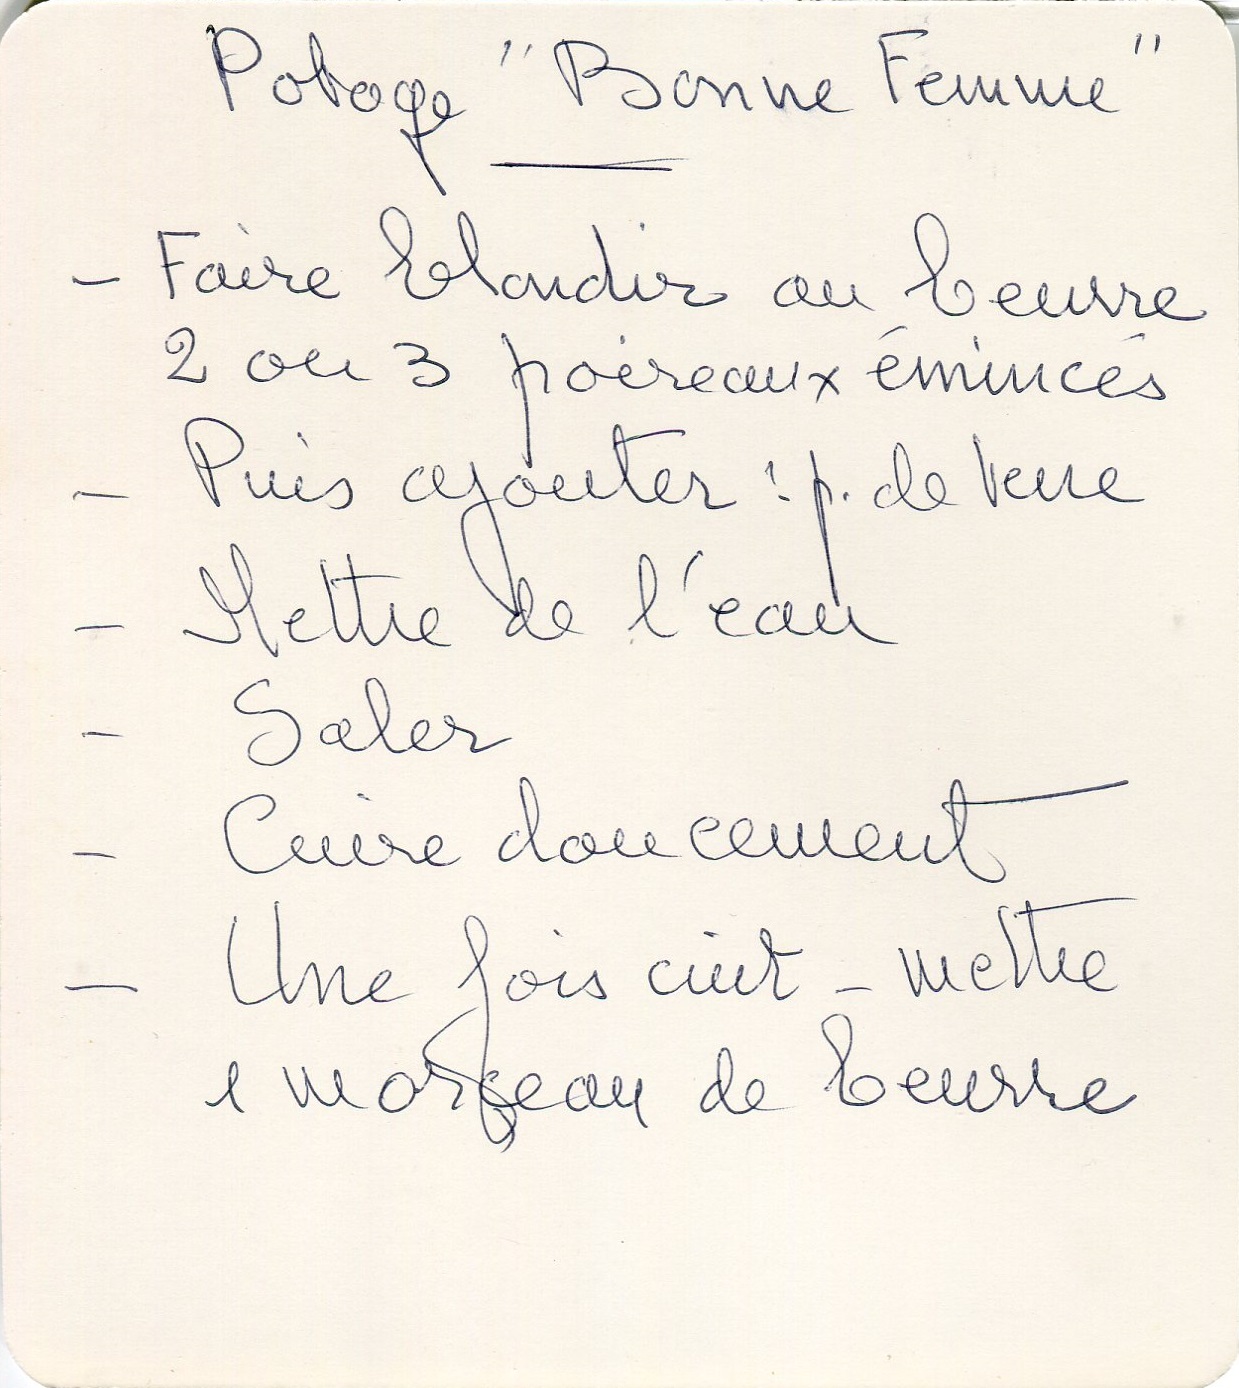 Potage "Bonne Femme"
- Faire blondir au beurre
2 ou 3 poireaux émincés
- Puis ajouter : p. de terre
- Mettre de l'eau
- Saler
- Cuire doucement
- Une fois cuit - mettre
1 morceau de beurre